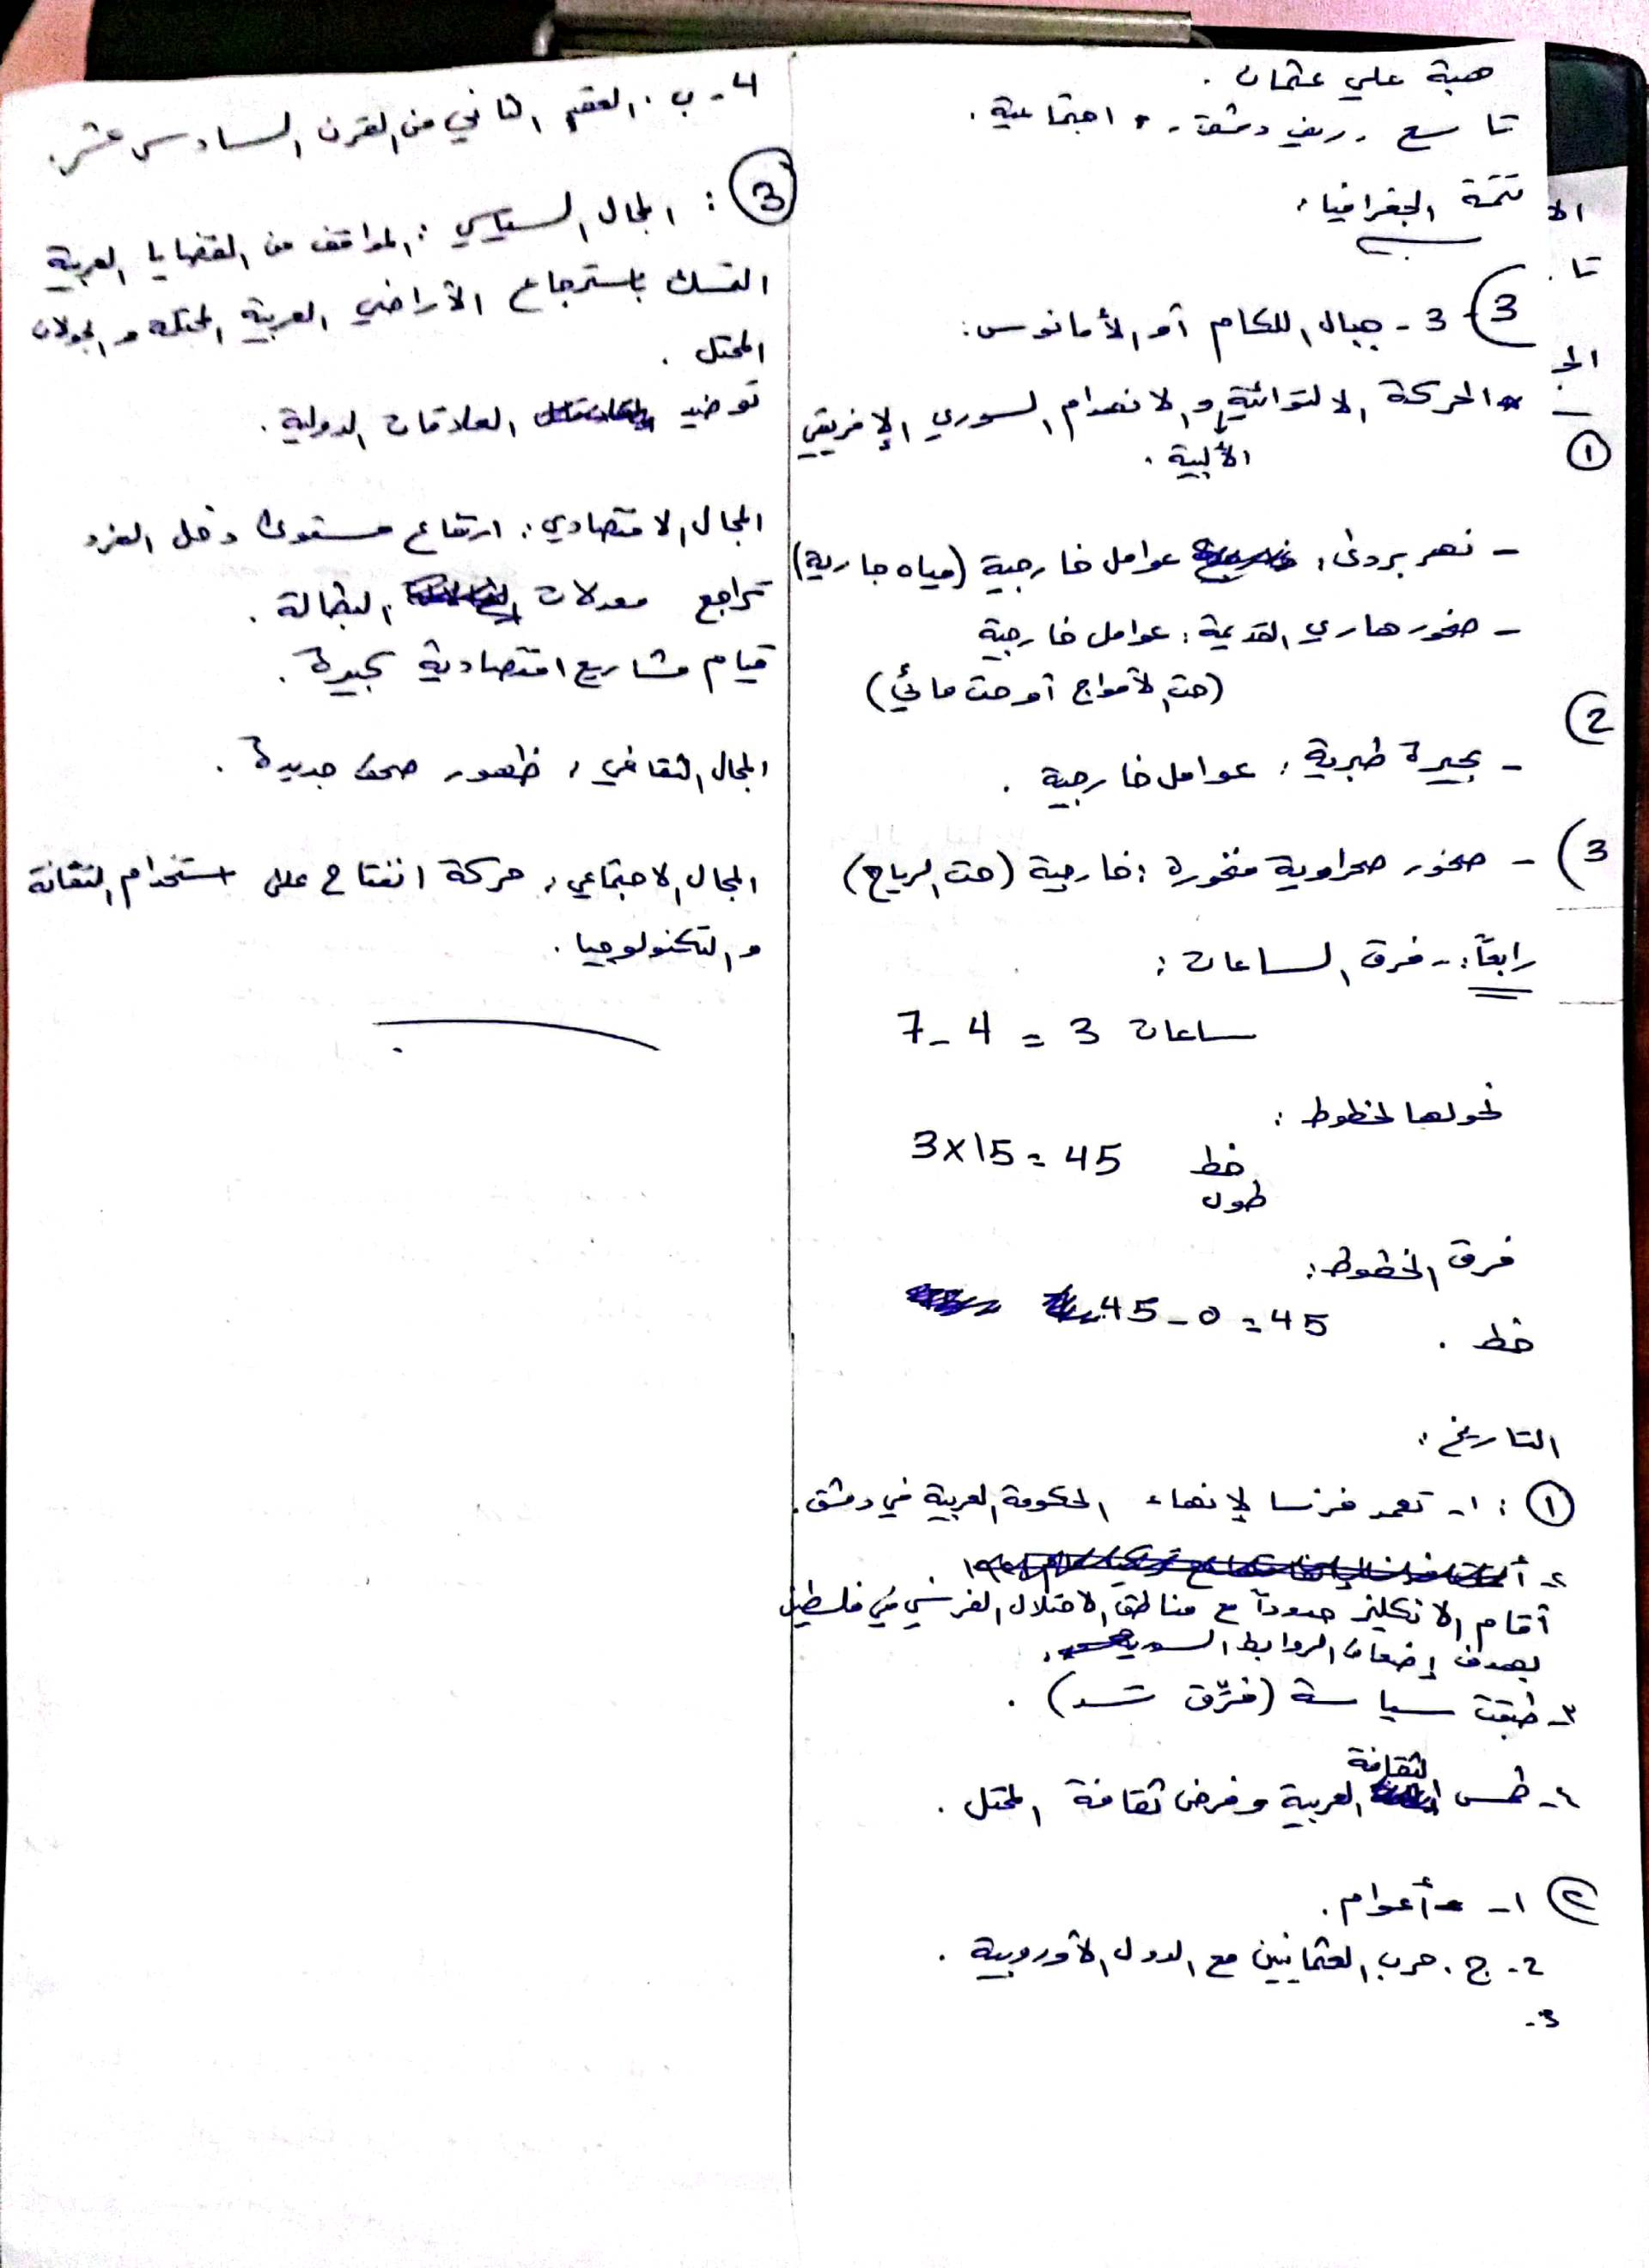 هبة علي عثمان .
تاسع . ريف دمشق . اجتماعية .
تتمة الجغرافيا :
3) 3 - جبال اللكام أو الأمانوس :
الحركة الالتوائية و الانهدام السوري الإفريقي
الألبية .
- نهر بردى : عوامل خارجية (مياه جارية)
- صخور هاري القديمة : عوامل خارجية
(حت الأمواج أو حت مائي)
- بحيرة طبرية : عوامل خارجية .
- صخور صحراوية منخورة : خارجية (حت الرياح)
رابعاً : - فرق الساعات :
7 - 4 = 3 ساعات
نحولها لخطوط :
3 × 15 = 45 خط
طول
فرق الخطوط :
45 - 0 = 45
خط .
التاريخ :
① : ١- تعمد فرنسا لإنهاء الحكومة العربية في دمشق .
٢-
أقام الانكليز حدوداً مع مناطق الاحتلال الفرنسي في فلسطين
بهدف إضعاف الروابط
٣- طبقت سياسة (فرّق تسد) .
الثقافة
٤- طمس العربية وفرض ثقافة المحتل .
② ١- أعوام .
2- ج . حرب العثمانيين مع الدول الأوروبية .
3-
4- ب . العقد الثاني من القرن السادس عشر .
③ : المجال السياسي : المواقف من القضايا العربية
التمسك باسترجاع الأراضي العربية المحتلة و الجولان
المحتل .
توطيد العلاقات الدولية .
المجال الاقتصادي : ارتفاع مستوى دخل الفرد
تراجع معدلات البطالة .
قيام مشاريع اقتصادية كبيرة .
المجال الثقافي : ظهور صحف جديدة .
المجال الاجتماعي : حركة انفتاح على استخدام التقانة
و التكنولوجيا .
الا
تا .
الج
①
2)
3)